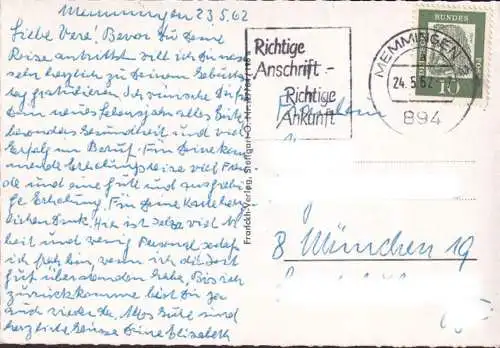 Memmingen 23.5.62
Liebe Vere! Bevor du Deine
Reise antrittst will ich Dir noch
sehr herzlich zu Deinem Geburts
tag gratulieren. Ich wünsche Dir
zum neuen Lebensjahr alles Gute
besonders Gesundheit und viel
Erfolg im Beruf. Für Deine kom
mende Erholungsreise viel Freu
de und eine gute und ausgiebi
ge Erholung. Für Deine Karte herz
lichen Dank. Hier ist sehr viel Ar
beit und wenig Personal sodaß
ich froh bin, wenn ich die Zeit
gut überstanden habe. Bis ich
zurück komme bist Du ja
auch wieder da. Alles Gute und
herzliche Grüsse Deine Elisabeth
Franckh-Verlag, Stuttgart-O.
Richtige
Anschrift -
Richtige
Ankunft
MEMMINGEN
24.5.62
894
BUNDES
POST
10
Fräulein
8 München 19